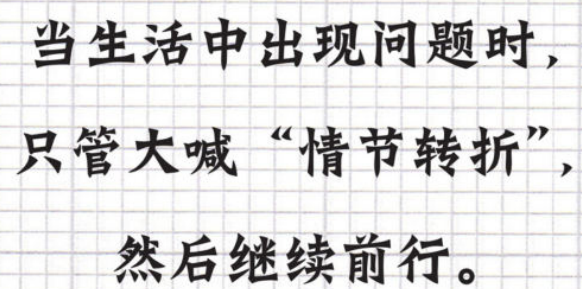 当生活中出现问题时，
只管大喊“情节转折”，
然后继续前行。